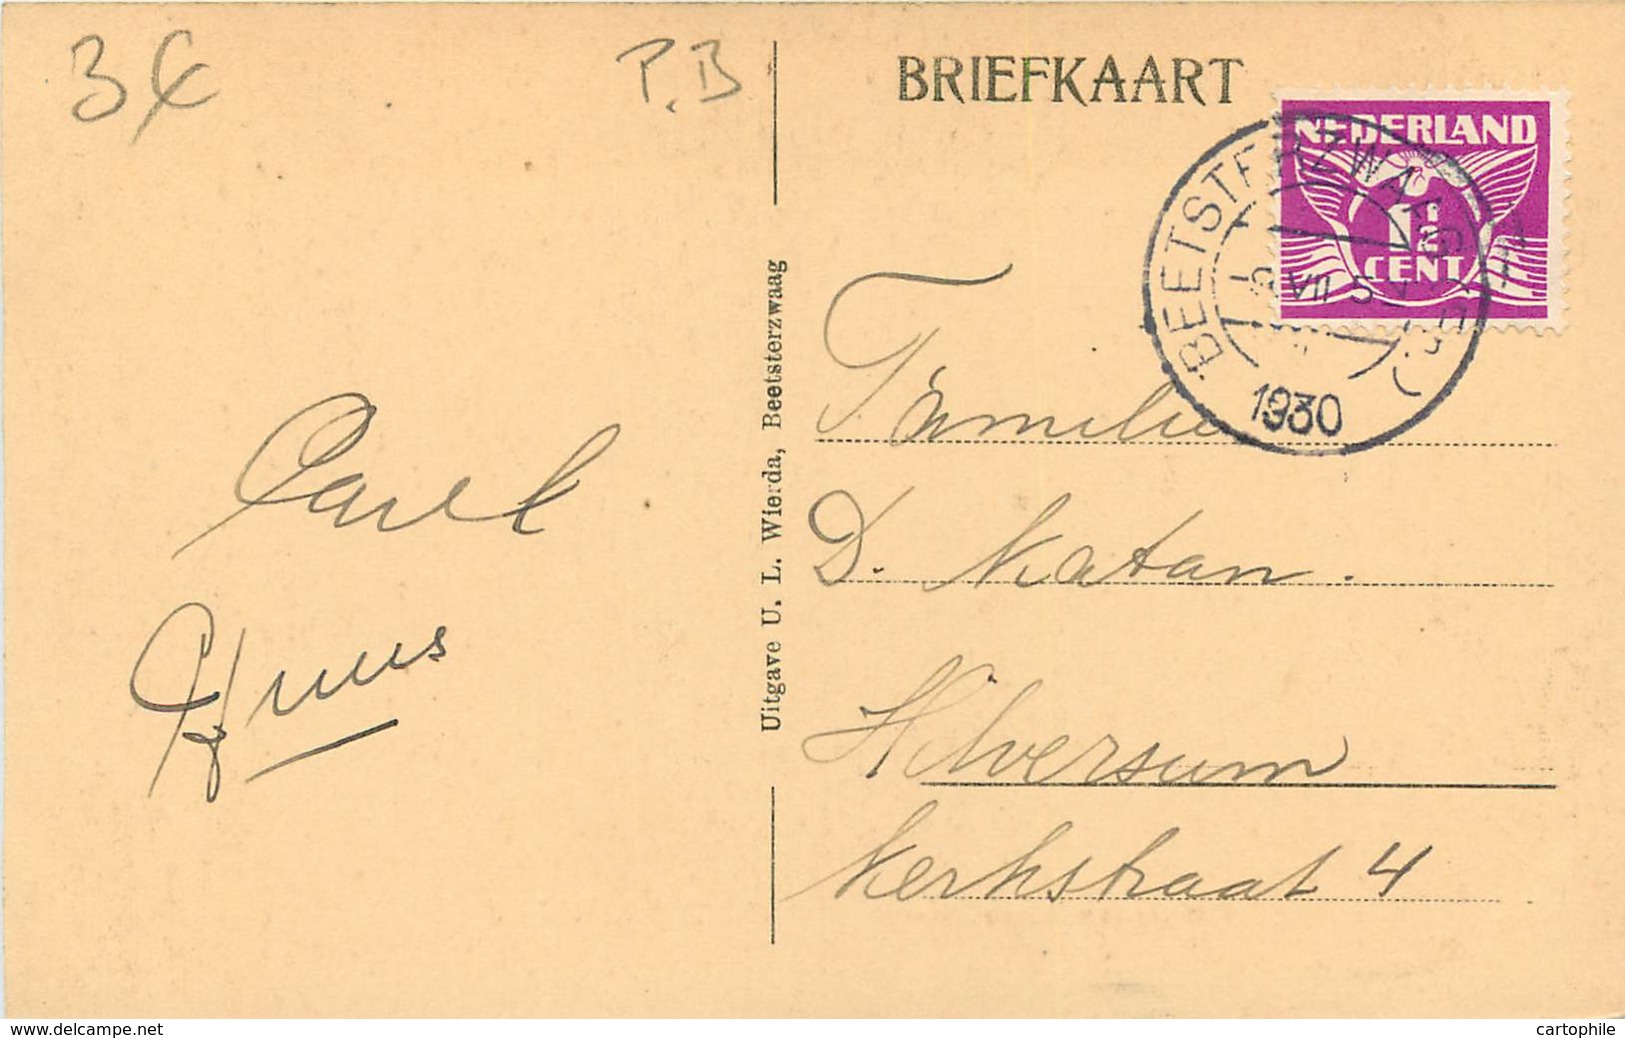 3€
P.B
BRIEFKAART
NEDERLAND
1½
CENT
BEETSTERZWAAG
VII
1930
Uitgave U. L. Wierda, Beetsterzwaag
Familie
D. Katan.
Hilversum
Kerkstraat 4
Carel
www.delcampe.net
cartophile